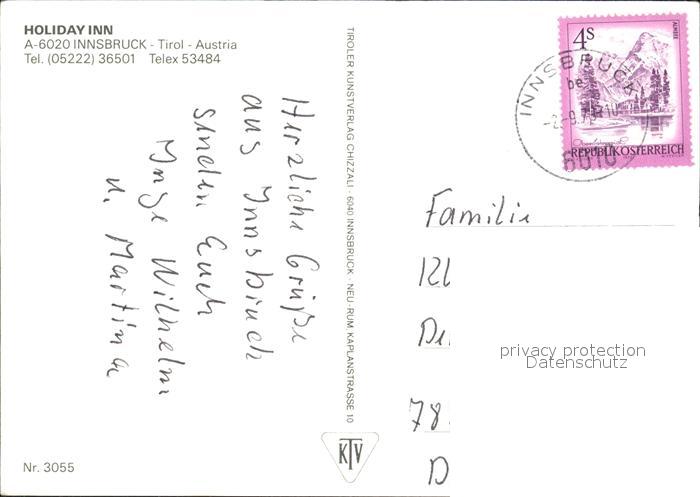 HOLIDAY INN
A-6020 INNSBRUCK - Tirol - Austria
Tel. (05222) 36501 Telex 53484
Herzliche Grüße
aus Innsbruck
senden Euch
Inge Wilhelm
u. Martina
TIROLER KUNSTVERLAG CHIZZALI · 6040 INNSBRUCK · NEU-RUM, KAPLANSTRASSE 10
KTV
Nr. 3055
4S
ALMSEE
REPUBLIK ÖSTERREICH
INNSBRUCK
6010
Familie
78
D
privacy protection
Datenschutz